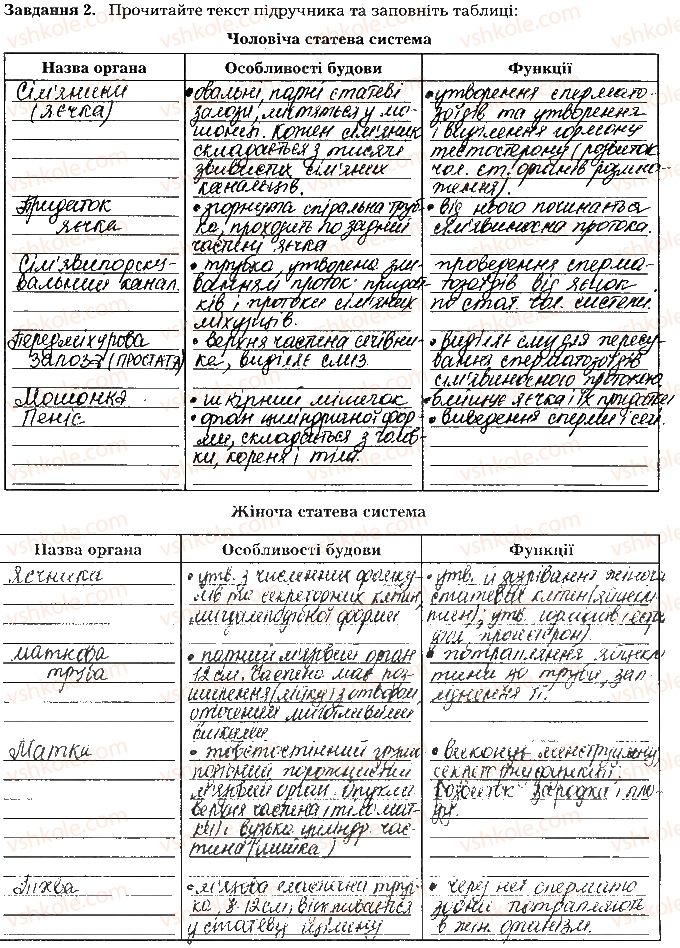 Завдання 2. Прочитайте текст підручника та заповніть таблиці:
Чоловіча статева система
Назва органа
Особливості будови
Функції
Сім'яники
(яєчка)
• овальні, парні статеві
залози, містяться у мо-
шонці. Кожен сім'яник
складається з тисячі
звивистих сім'яних
канальців.
• утворення спермато-
зоїдів та утворення
і виділення гормону
тестостерону (розвиток
чол. ст. органів розмно-
ження).
Придаток
яєчка
• згорнута спіральна труб-
ка, проходить по задній
частині яєчка
• від нього починається
сім'явиносна протока.
Сім'явипорску-
вальний канал
• трубка, утворена зли-
ванням проток: придат-
ків і протоки сім'яних
міхурців.
проведення сперма-
тозоїдів від яєчок
по стат. чол. системі.
Передміхурова
залоза (простата)
• верхня частина сечівни-
ка, виділяє слиз
• виділяє слиз для пересу-
вання сперматозоїдів
сім'явиносною протокою
Мошонка
• шкірний мішечок
• вміщує яєчка і їх придатки
Пеніс
• орган циліндричної фор-
ми, складається з голов-
ки, кореня і тіла.
• виведення сперми і сечі.
Жіноча статева система
Назва органа
Особливості будови
Функції
Яєчника
• утв. з численних фоліку-
лів та секреторних клітин,
мигдалеподібної форми
• утв. й дозрівання жіночих
статевих клітин
утв.
Маткова
труба
• парний м'язовий орган
12 см.
отвором,
оточений
• потрапляння яйцеклі-
тини до труби, зап-
ліднення її.
Матка
• товстостінний груше-
подібний порожнистий
м'язовий орган. Опукла
верхня частина (тіло мат-
ки) і вузька циліндр. час-
тина (шийка)
• виконує менструальну,
секрет. функції.
Розвиток зародка і пло-
ду.
Піхва
• м'язова еластична труб-
ка, 8-12 см, відкривається
у статеву щілину
• через неї спермато-
зоїди потрапляють
в жін. організм.
vshkole.com